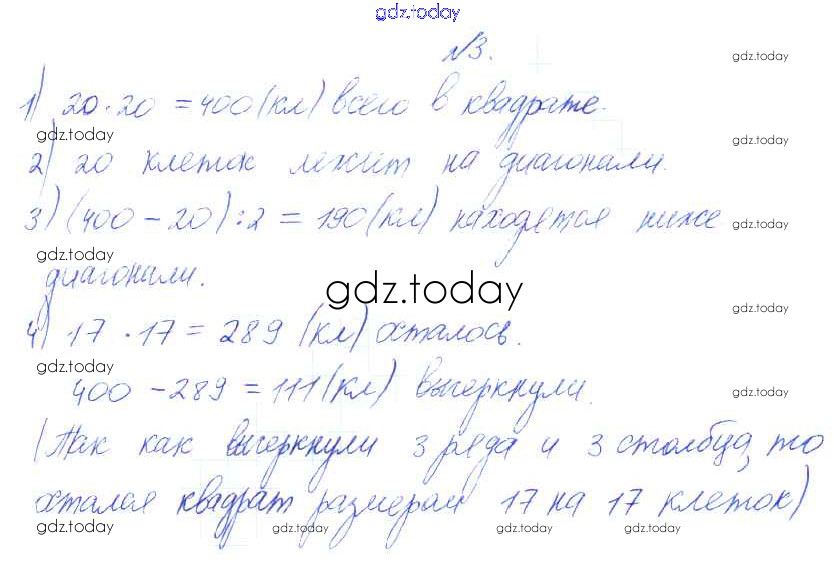 gdz.today
№3.
gdz.today
1) 20·20 = 400 (кл) всего в квадрате.
gdz.today
gdz.today
2) 20 клеток лежит на диагонали.
gdz.today
3) (400 - 20) : 2 = 190 (кл) находятся ниже
gdz.today
gdz.today
диагонали.
gdz.today
gdz.today
4) 17 · 17 = 289 (кл) осталось.
gdz.today
400 - 289 = 111 (кл) вычеркнули.
gdz.today
(Так как вычеркнули 3 ряда и 3 столбца, то
gdz.today
gdz.today
остался квадрат размером 17 на 17 клеток)
gdz.today
gdz.today
gdz.today
gdz.today